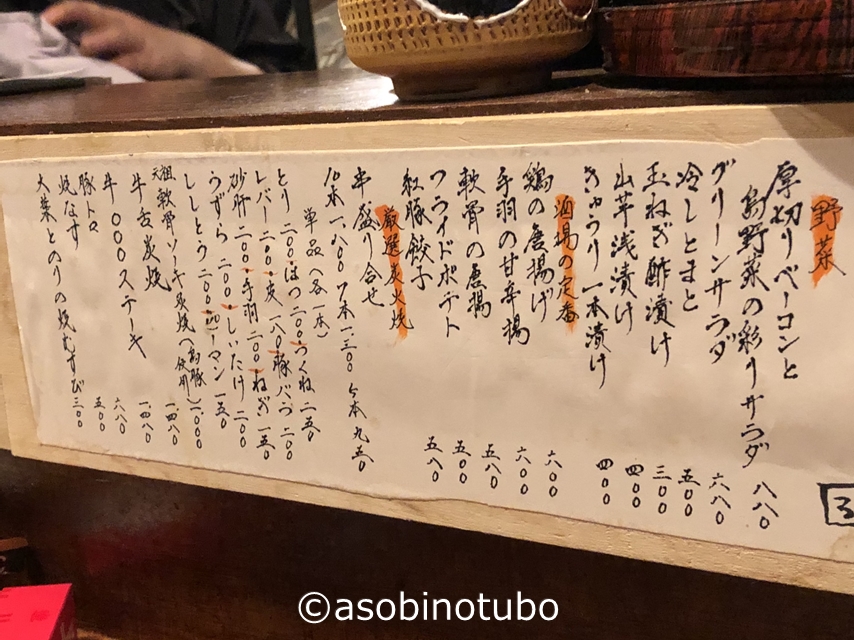 野菜
厚切りベーコンと
島野菜の彩りサラダ 八八〇
グリーンサラダ 六八〇
冷しとまと 五〇〇
玉ねぎ酢漬け 三〇〇
山芋浅漬け 四〇〇
きゅうり一本漬け 四〇〇
酒場の定番
鶏の唐揚げ 六〇〇
手羽の甘辛揚 六〇〇
軟骨の唐揚 五八〇
フライドポテト 五〇〇
紅豚餃子 五八〇
厳選炭火焼
串盛り合せ
10本 一、八〇〇 7本 一、三〇〇 5本 九五〇
単品（各一本）
とり 二〇〇・はつ 二〇〇・つくね 二五〇
レバー 二〇〇・皮 一八〇・豚バラ 二〇〇
砂肝 二〇〇・手羽 二〇〇・ねぎ 一五〇
うずら 二〇〇・しいたけ 二〇〇
ししとう 二〇〇・ピーマン 一五〇
軟骨ソーキ炭焼（島豚使用） 一、〇〇〇
牛舌炭焼 一、四八〇
牛 ステーキ 一、四八〇
豚トロ 六八〇
焼なす 五〇〇
大葉とのりの焼むすび 三〇〇
©asobinotubo